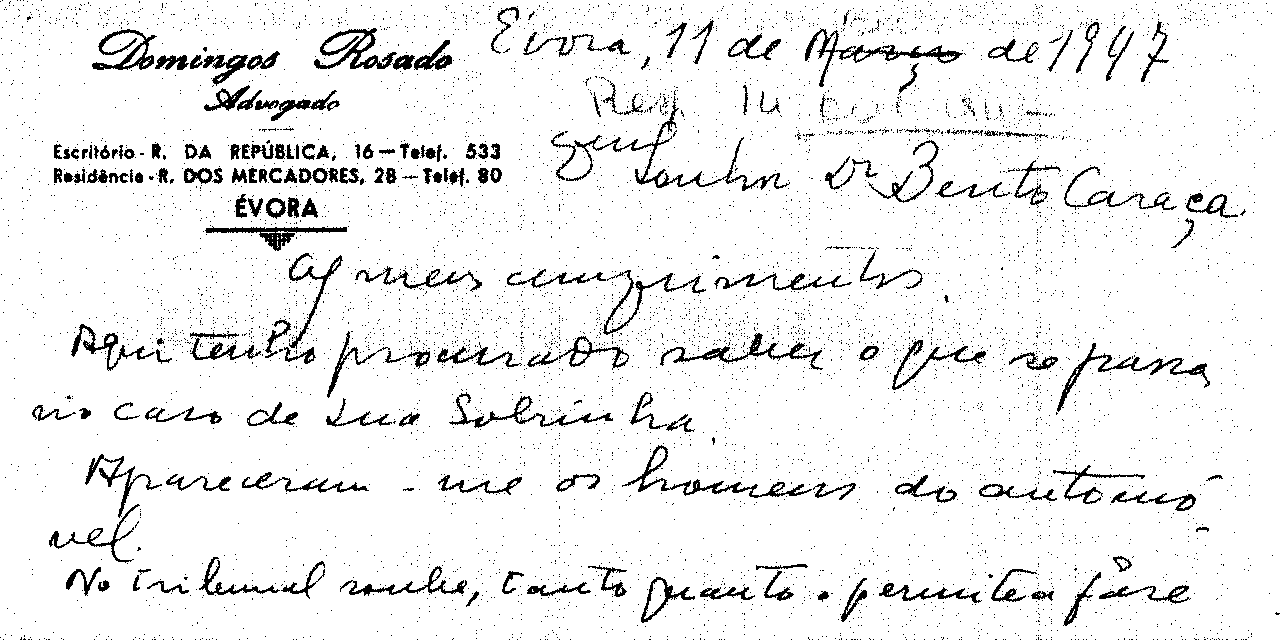 Domingos Rosado
Advogado
Escritório - R. DA REPÚBLICA, 16 — Telef. 533
Residência - R. DOS MERCADORES, 28 — Telef. 80
ÉVORA
Évora, 11 de Março de 1947
Resp. 14
Senhor Dr Bento Caraça
Os meus cumprimentos.
Aqui tenho procurado saber o que se passa
no caso de sua Sobrinha.
Apareceram-me os homens do automó-
vel.
No tribunal soube, tanto quanto o permitia a fáse